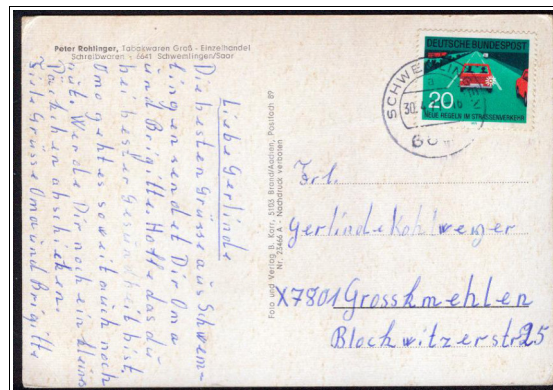 Peter Rohlinger, Tabakwaren Groß - Einzelhandel
Schreibwaren - 6641 Schwemlingen/Saar
Liebe Gerlinde
Die besten Grüsse aus Schwem-
lingen sendet Dir Oma
und Brigitte. Hoffe das du
bei bester Gesundheit bist,
Oma geht es soweit auch noch
gut. Werde Dir noch ein kleines
Päckchen abschicken.
Viele Grüsse Oma und Brigitte
Foto und Verlag B. Korr, 5105 Brand/Aachen, Postfach 89
Nr. 23466 A Nachdruck verboten
DEUTSCHE BUNDESPOST
20
NEUE REGELN IM STRASSENVERKEHR
SCHWEMLINGEN
30.
Frl.
Gerlinde Kohlweyer
X7801 Grosskmehlen
Blochwitzerstr 25